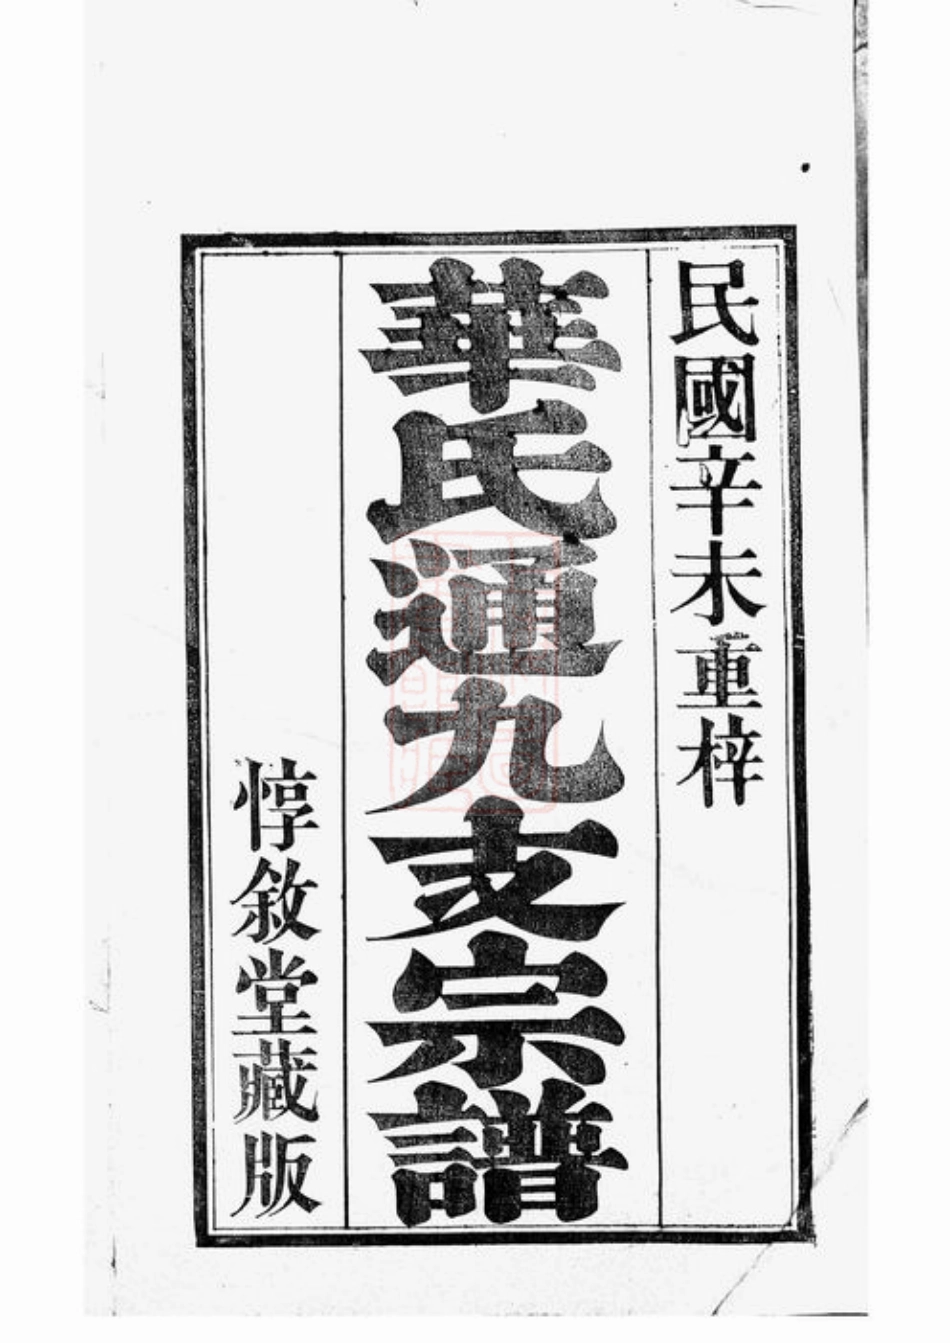 民國辛未重梓
華氏通九支宗譜
惇敘堂藏版